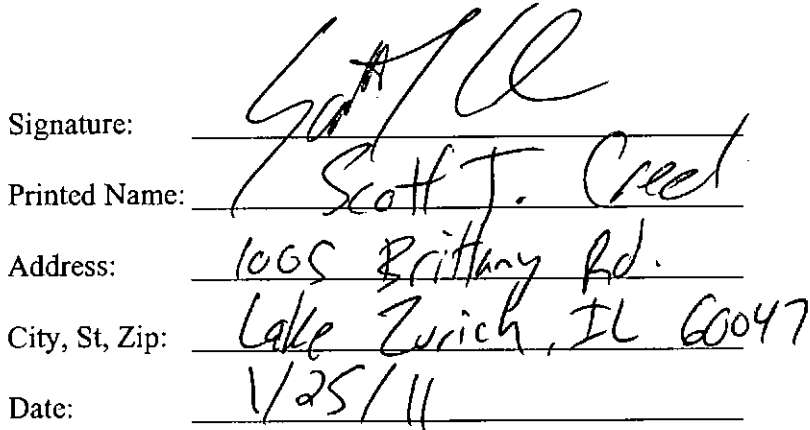 Signature:
Printed Name: Scott T. Creed
Address: 1005 Brittany Rd.
City, St, Zip: Lake Zurich, IL 60047
Date: 1/25/11